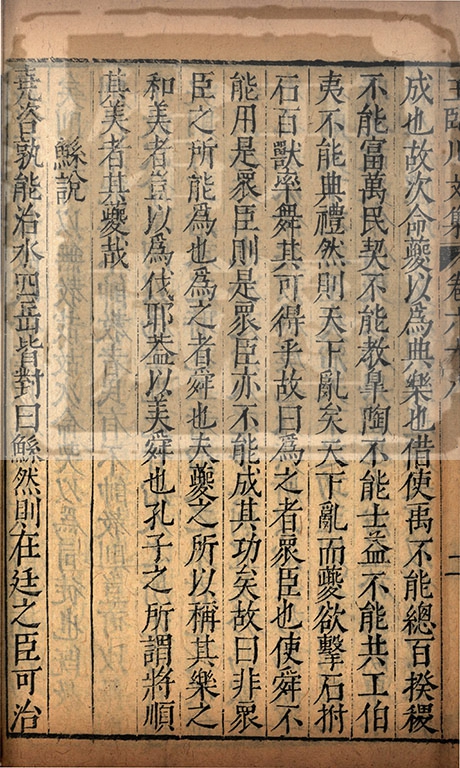 王臨川文集 卷六十八
成也故次命夔以為典樂也借使禹不能總百揆稷
不能富萬民契不能教臯陶不能士益不能共工伯
夷不能典禮然則天下亂矣天下亂而夔欲擊石拊
石百獸率舞其可得乎故曰為之者眾臣也使舜不
能用是眾臣則是眾臣亦不能成其功矣故曰非眾
臣之所能為也為之者舜也夫夔之所以稱其樂之
和美者豈以為伐耶葢以美舜也孔子之所謂將順
其美者其夔哉
鯀說
堯咨孰能治水四岳皆對曰鯀然則在廷之臣可治